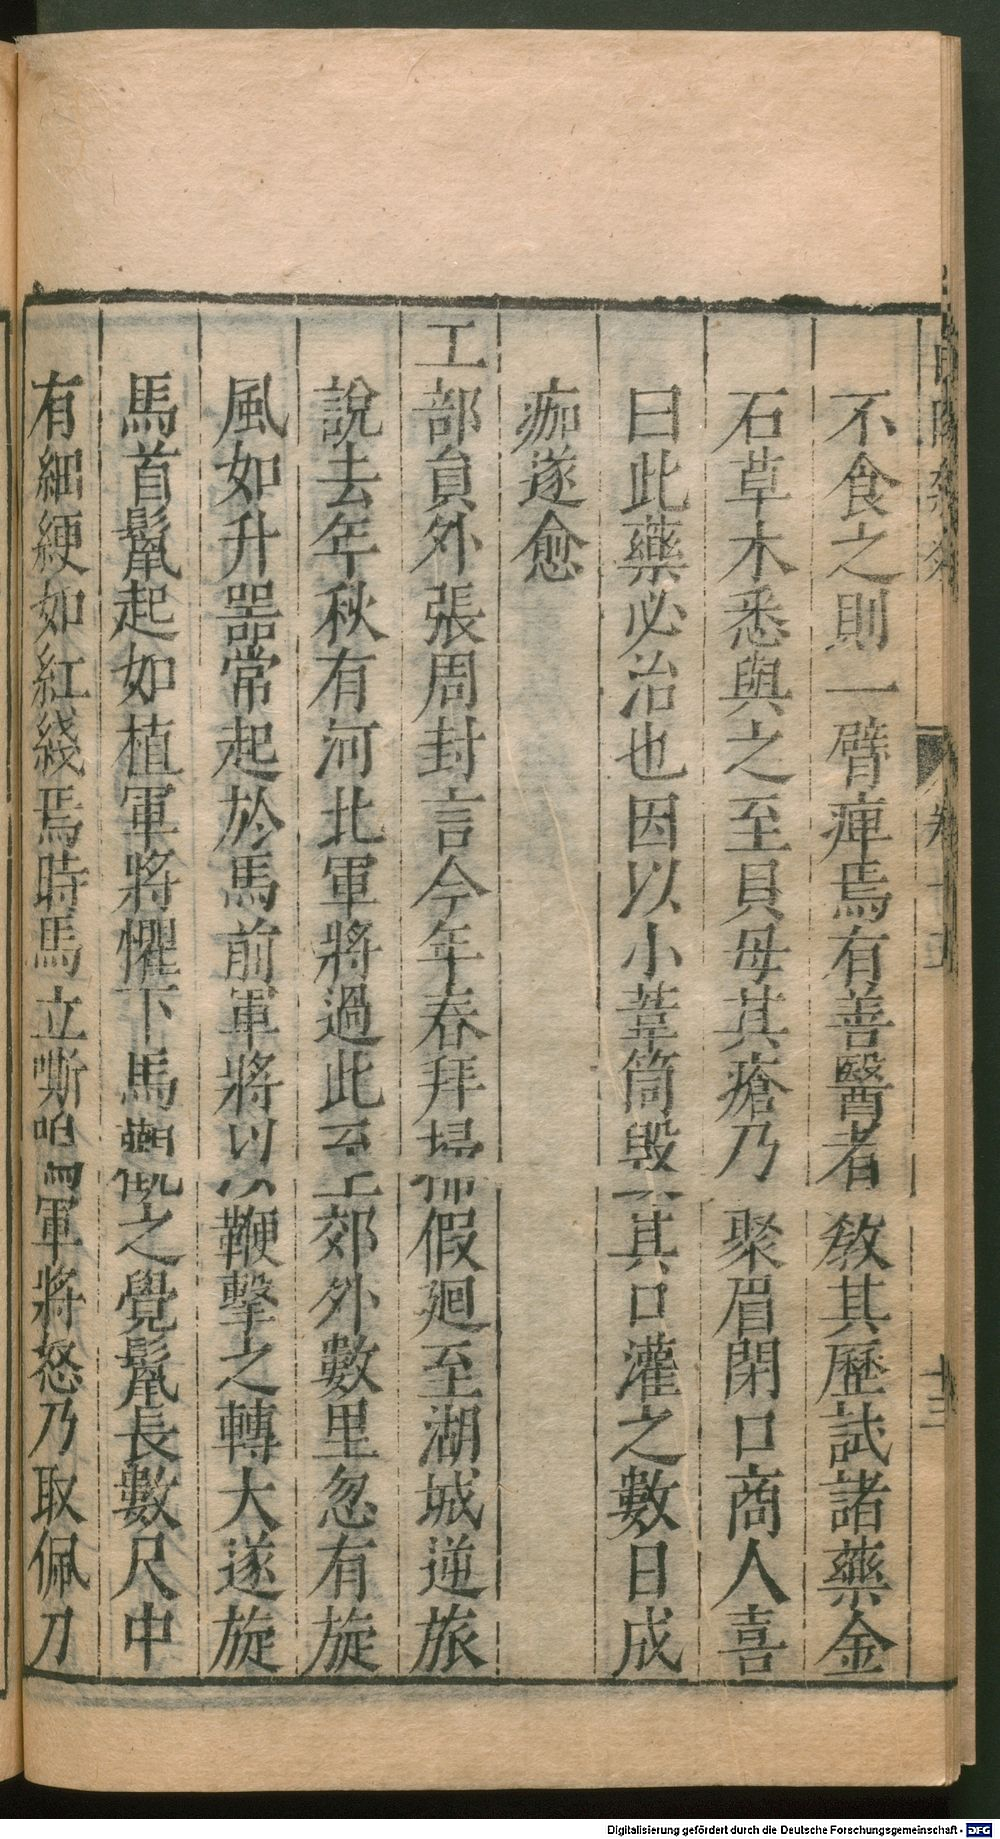 不食之則一臂痺焉有善醫者敎其歷試諸藥金
石草木悉與之至貝母其瘡乃聚眉閉口商人喜
曰此藥必治也因以小葦筒毀其口灌之數日成
痂遂愈
工部員外張周封言今年春拜掃假廻至湖城逆旅
說去年秋有河北軍將過此至郊外數里忽有旋
風如升器常起於馬前軍將以鞭擊之轉大遂旋
馬首鬣起如植軍將懼下馬觀之覺鬣長數尺中
有細綆如紅綫焉時馬立嘶鳴軍將怒乃取佩刀
十三
Digitalisierung gefördert durch die Deutsche Forschungsgemeinschaft - DFG